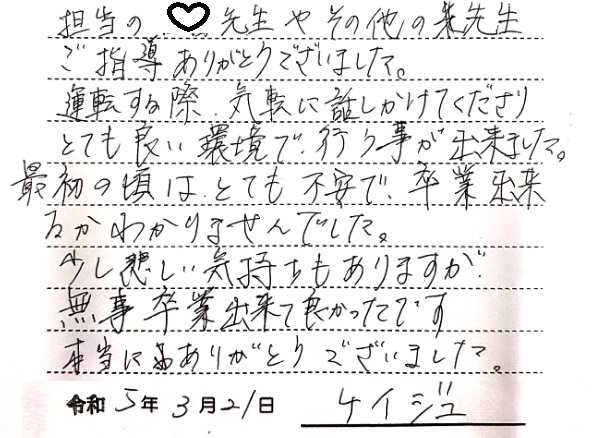 担当の♡先生やその他の先生
ご指導ありがとうございました。
運転する際 気軽に話しかけてくださり
とても良い環境で行う事が出来ました。
最初の頃は、とても不安で、卒業出来
るかわかりませんでした。
少し悲しい気持ちもありますが、
無事卒業出来て良かったです
本当にありがとうございました。
令和 5年 3月21日 ケイジュ